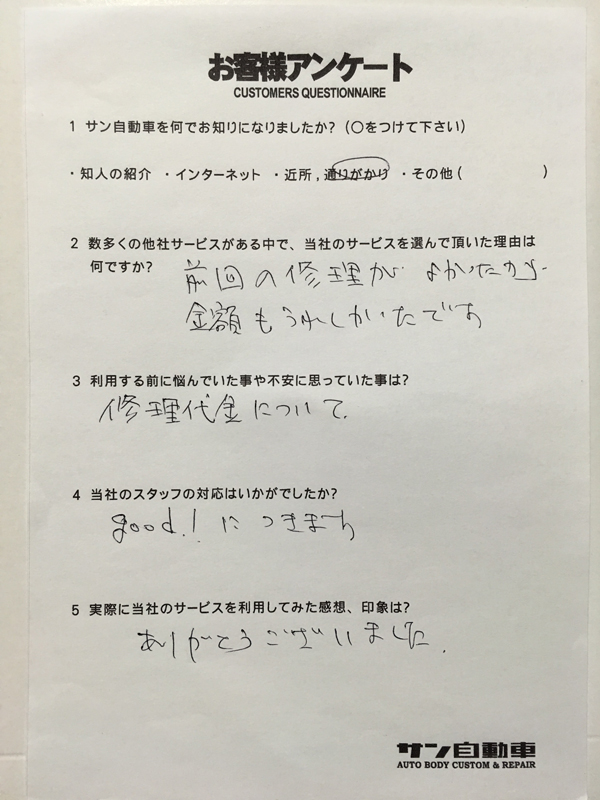 お客様アンケート
CUSTOMERS QUESTIONNAIRE
1 サン自動車を何でお知りになりましたか?(○をつけて下さい)
・知人の紹介 ・インターネット ・近所,通りがかり ・その他( )
2 数多くの他社サービスがある中で、当社のサービスを選んで頂いた理由は
何ですか?
前回の修理が よかったから
金額もうれしかったです
3 利用する前に悩んでいた事や不安に思っていた事は?
修理代金について.
4 当社のスタッフの対応はいかがでしたか?
good.! につきます
5 実際に当社のサービスを利用してみた感想、印象は?
ありがとうございました.
サン自動車
AUTO BODY CUSTOM & REPAIR